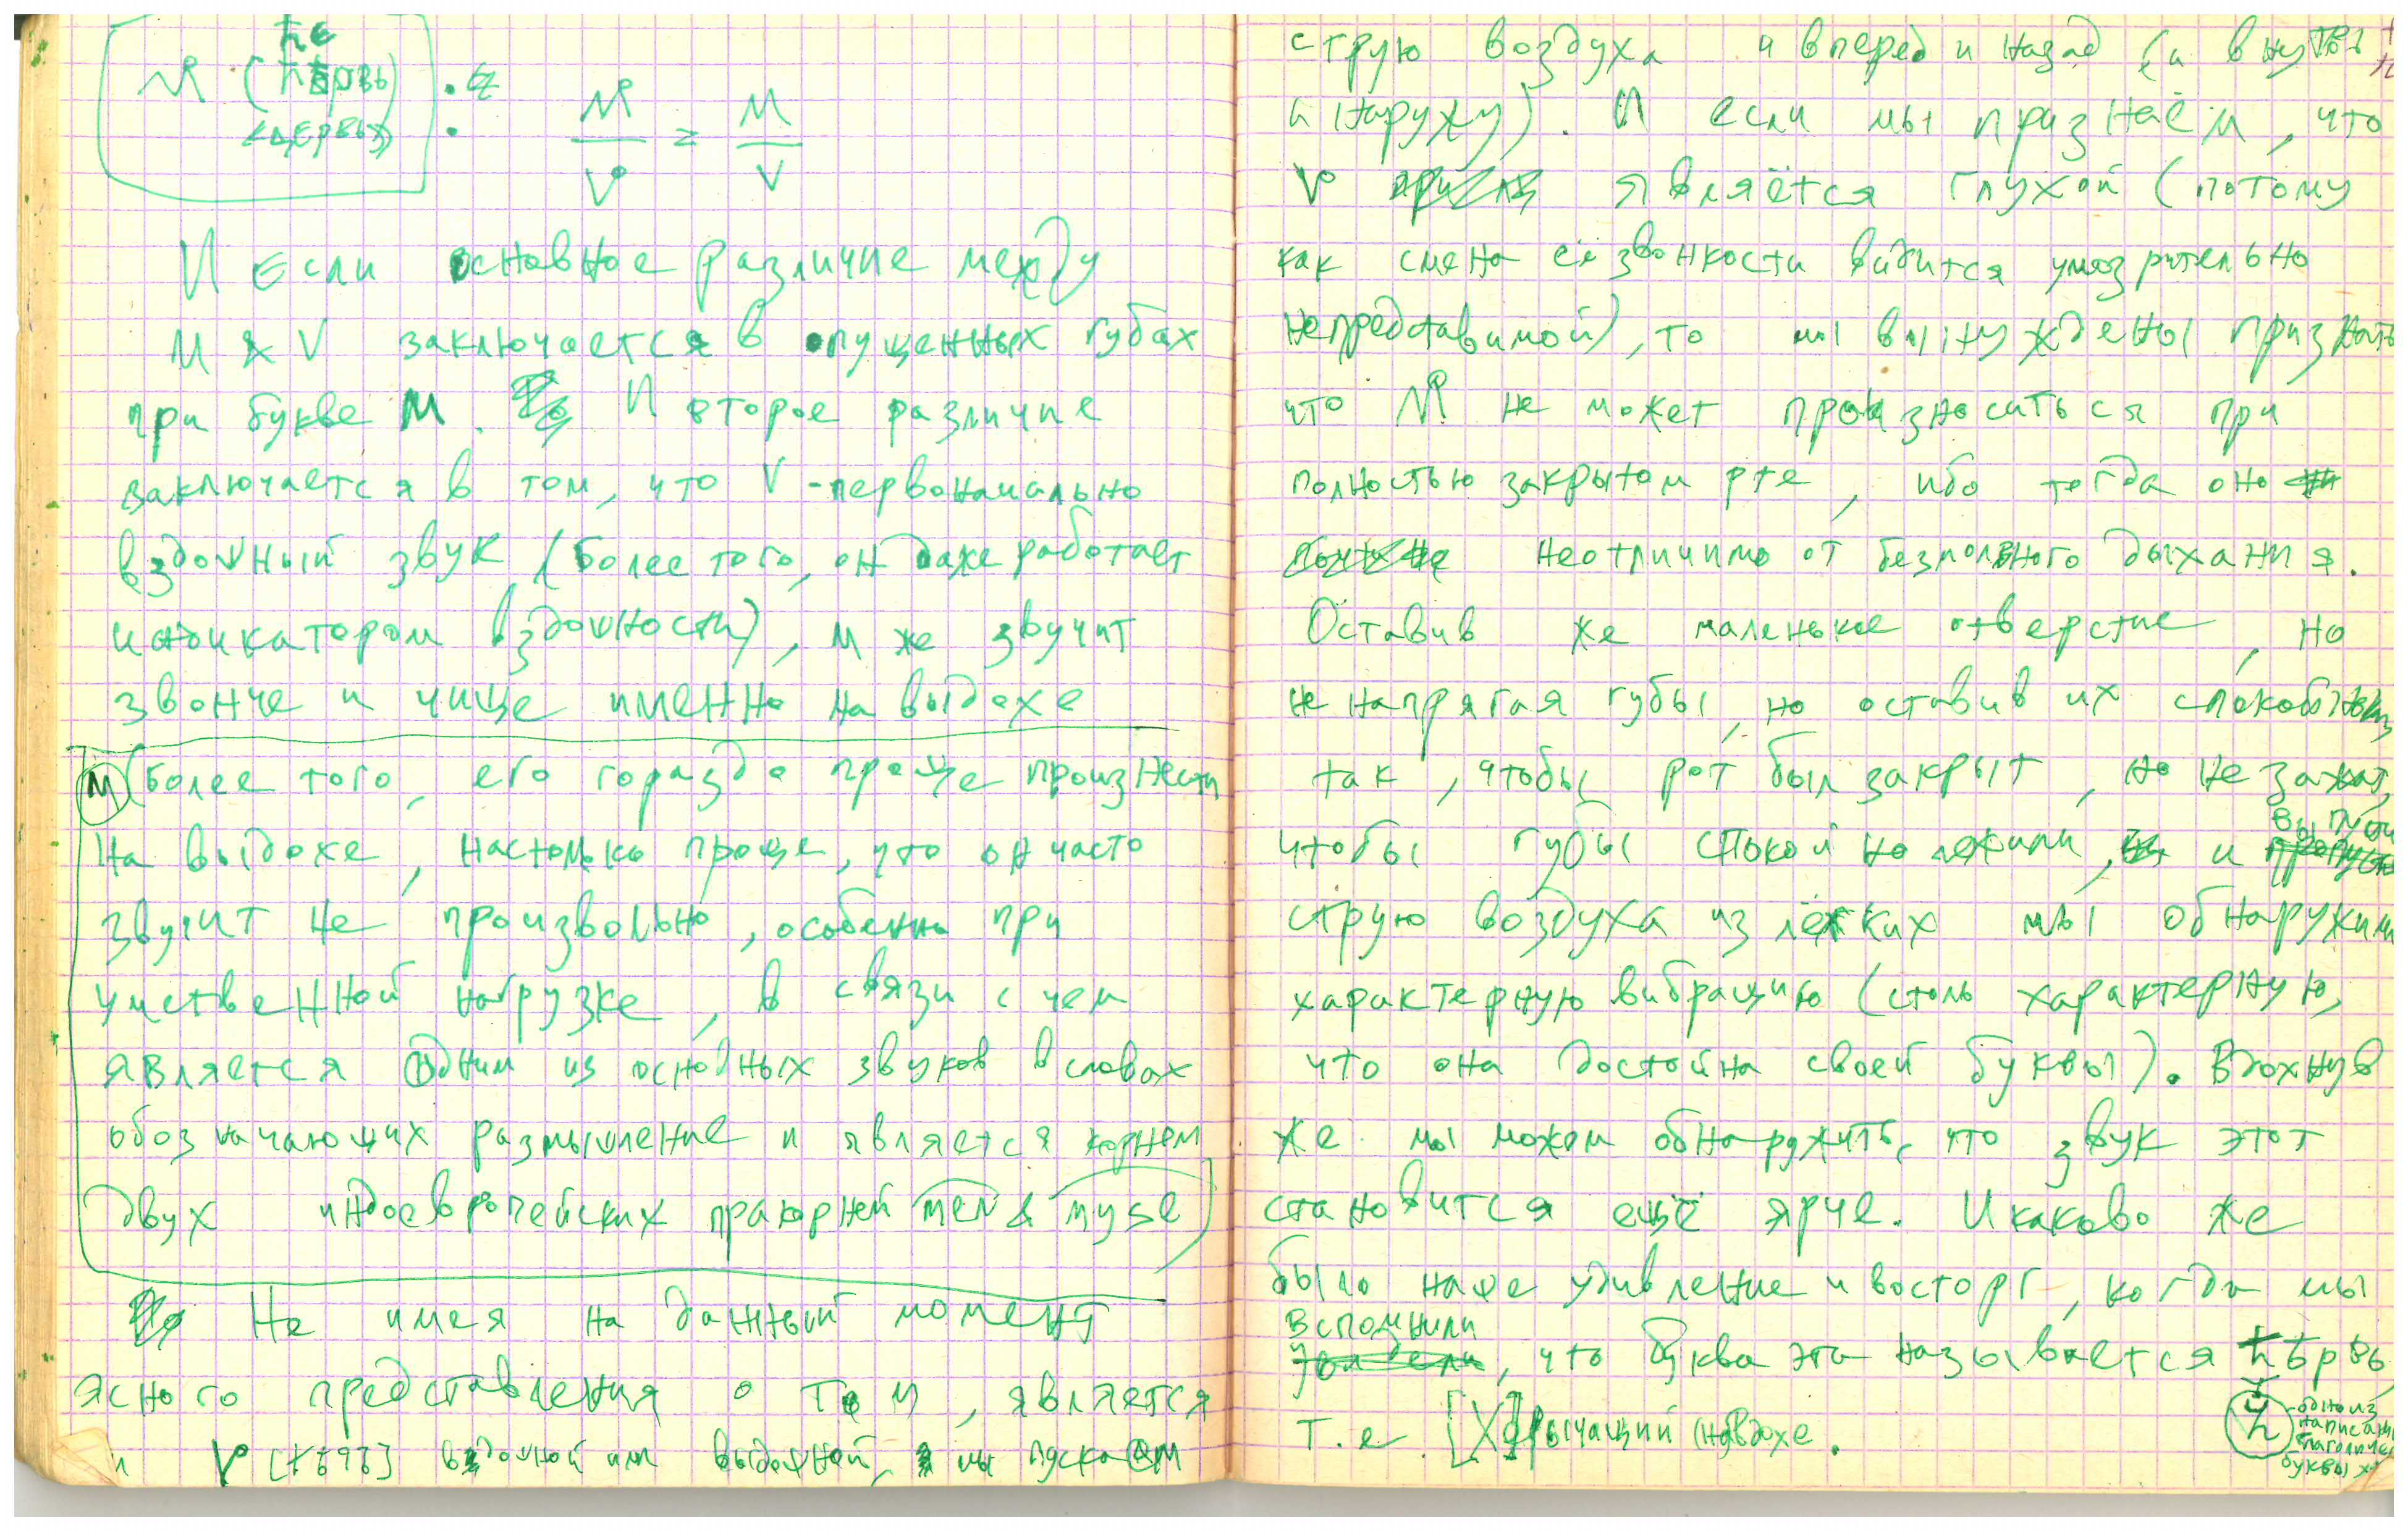 ћє
М° (ћѣрвь) :
<церевь>
М° / V° = М / V
И если основное различие между
М & V заключается в опущенных губах
при букве М. И второе различие
заключается в том, что V -первоначально
вздошный звук (более того, он даже работает
индикатором вздошности), М же звучит
звонче и чище именно на выдохе
М (более того, его гораздо проще произнести
на выдохе, настолько проще, что он часто
звучит не произвольно, особенно при
умственной нагрузке, в связи с чем
является одним из основных звуков в словах
обозначающих размышление и является корнем
двух индоевропейских пракорней men & myse)
Не имея на данный момент
ясного представления о том, является
и V° вздошной или выдошной, мы пускаем
струю воздуха и вперед и назад (и внутрь
и наружу). И если мы признаём, что
V° является глухой (потому
как смена её звонкости видится умозрительно
непредставимой), то мы вынуждены признать
что М° не может произноситься при
полностью закрытом рте, ибо тогда оно
неотличимо от безмолвного дыхания.
Оставив же маленькое отверстие, но
не напрягая губы, но оставив их спокойными
так, чтобы рот был закрыт, но не зажат,
чтобы губы спокойно лежали, и выпустив
струю воздуха из лёгких мы обнаружим
характерную вибрацию (столь характерную,
что она достойна своей буквы). Вдохнув
же мы можем обнаружить, что звук этот
становится ещё ярче. И каково же
было наше удивление и восторг, когда мы
вспомнили, что буква эта называется ћѣрвь,
т.е. [Х]рычащий на вдохе.
ћ - одно из
написаний
глаголич.
буквы х